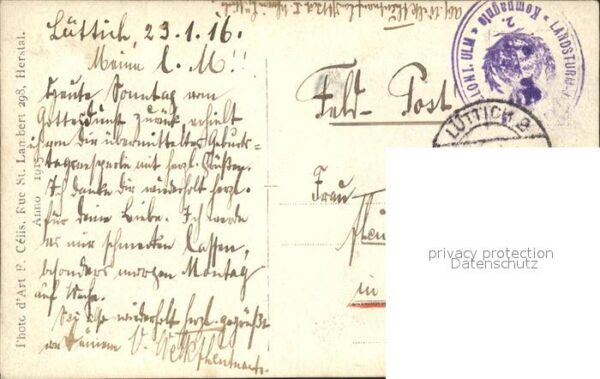 Lüttich, 23.1.16.
Meine l. M!!
Heute Sonntag vom
Gottesdienst zurück erhielt
ich von dir übermitteltes Geburts-
tagsgeschenk mit herzl. Grüßen.
Ich danke dir wiederholt herzl.
für deine Liebe. Ich werde
es mir schmecken lassen,
besonders morgen Montag
auf Wache.
Sei also wiederholt herzl. gegrüßt
von deinem V.
Photo d'Art F. Célis, Rue St. Lambert 298, Herstal.
Anno 1915
Feld-Post
LANDSTURM
ULM
2. Kompagnie
LÜTTICH 2
Frau
in
privacy protection
Datenschutz